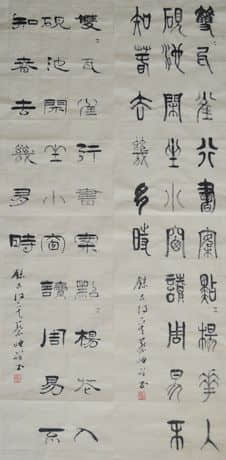 雙〻瓦雀行書案點〻楊華入
硯池閒坐小窗讀周易不
知春去幾多時
雙〻瓦雀行書案點〻楊花入
硯池閒坐小窗讀周易不
知春去幾多時